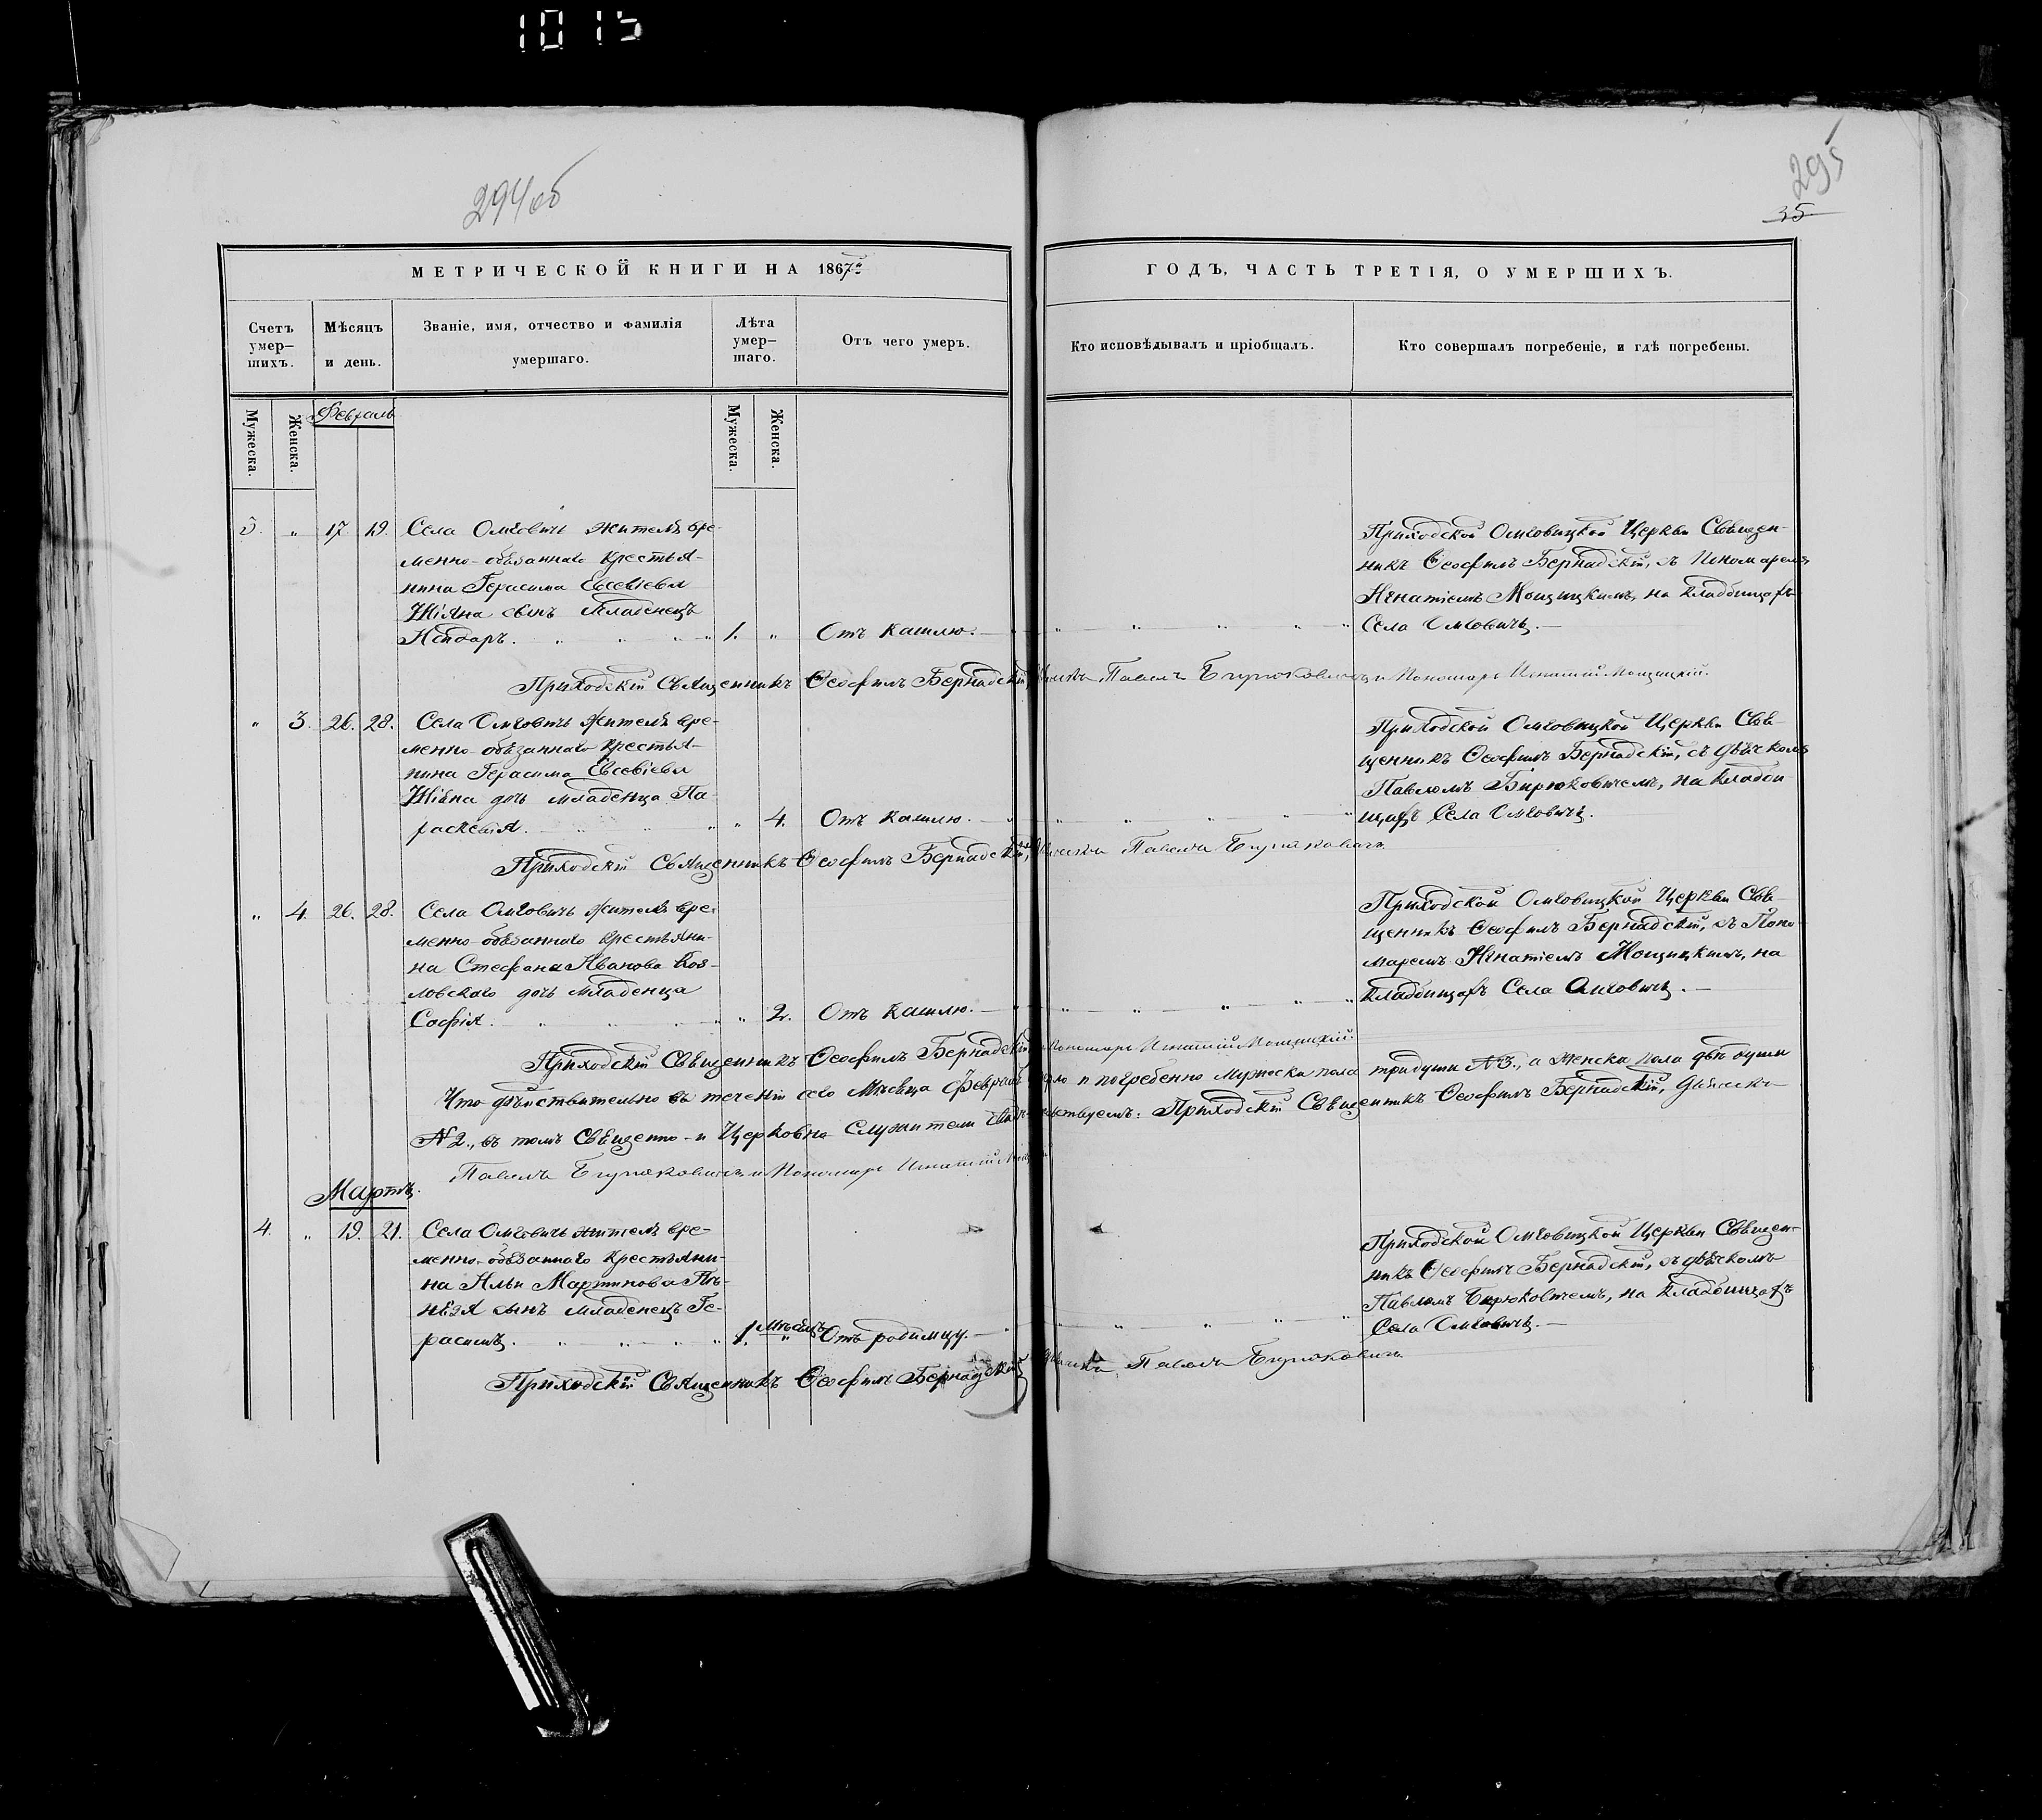 1015
294 об
295
35
МЕТРИЧЕСКОЙ КНИГИ НА 1867й
ГОДЪ, ЧАСТЬ ТРЕТІЯ, О УМЕРШИХЪ.
Счетъ умер-
шихъ.
Мѣсяцъ
и день.
Званіе, имя, отчество и фамилія
умершаго.
Лѣта
умер-
шаго.
Отъ чего умеръ.
Кто исповѣдывалъ и пріобщалъ.
Кто совершалъ погребеніе, и гдѣ погребены.
Мужеска.
Женска.
Февраль
Мужеска.
Женска.
3. " 17 19. Села Омговичъ жителя вре-
менно-обязаннаго крестья-
нина Герасима Евсевіева
сынъ Младенецъ
" " " " 1. " Отъ кашлю. " " " " "
Приходской Омговицкой Церкви Священ-
никъ Ѳеофилъ Бернадскій, съ Пономаремъ
Игнатіемъ Мощицкимъ, на кладбищахъ
Села Омговичъ.
Приходскій Священникъ Ѳеофилъ Бернадскій, Дьячекъ Павелъ Бирюковичъ и Пономарь Игнатій Мощицкій.
" 3. 26. 28. Села Омговичъ жителя вре-
менно-обязаннаго крестья-
нина Герасима Евсевіева
дочь младенца Па-
раскевія. " " " " 4. Отъ кашлю. " " " " "
Приходской Омговицкой Церкви Свя-
щенникъ Ѳеофилъ Бернадскій, съ дьячкомъ
Павломъ Бирюковичемъ, на кладби-
щахъ Села Омговичъ.
Приходскій Священникъ Ѳеофилъ Бернадскій, Дьячекъ Павелъ Бирюковичъ
" 4. 26. 28. Села Омговичъ жителя вре-
менно-обязаннаго крестьяни-
на Стефана Иванова Коз-
ловскаго дочь младенца
Софія. " " " " " 2. Отъ кашлю. " " " " "
Приходской Омговицкой Церкви Свя-
щенникъ Ѳеофилъ Бернадскій, съ Поно-
маремъ Игнатіемъ Мощицкимъ, на
кладбищахъ Села Омговичъ.
Приходскій Священникъ Ѳеофилъ Бернадскій Пономарь Игнатій Мощицкій.
Что дѣйствительно въ теченіи сего Мѣсяца Февраля и погребенно Мужеска пола три души №3., а Женска пола двѣ души
№2., въ томъ Священно-и Церковно Служители свидѣтельствуемъ: Приходскій Священникъ Ѳеофилъ Бернадскій, Дьячекъ
Павелъ Бирюковичъ и Пономарь Игнатій
Мартъ.
4. " 19. 21. Села Омговичъ жителя вре-
менно-обязаннаго крестьяни-
на Ильи Мартинова
сынъ младенецъ Ге-
расимъ. " " " " 1. Мѣсяцъ " Отъ родимцу. " " " " "
Приходской Омговицкой Церкви Священ-
никъ Ѳеофилъ Бернадскій, съ дьячкомъ
Павломъ Бирюковичемъ, на кладбищахъ
Села Омговичъ.
Приходскій Священникъ Ѳеофилъ Бернадскій Дьячекъ Павелъ Бирюковичъ